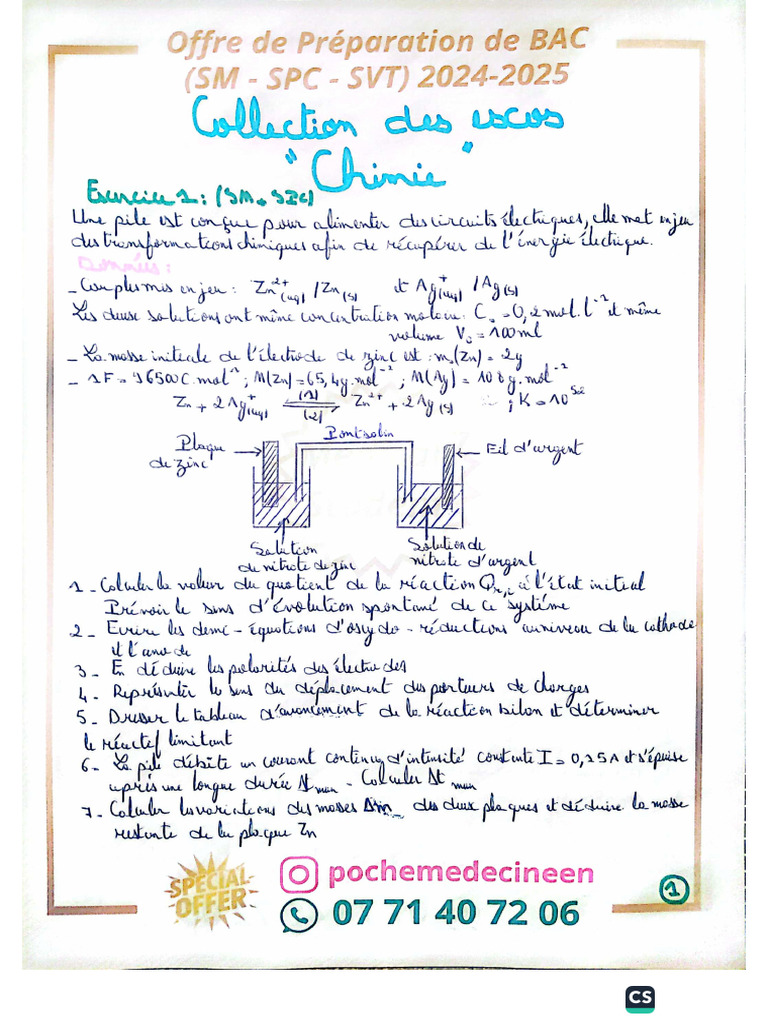 Offre de Préparation de BAC
(SM - SPC - SVT) 2024-2025
Collection des exos
"Chimie"
Exercice 1 : (SM + SPC)
Une pile est conçue pour alimenter des circuits électriques, elle met en jeu
des transformations chimiques afin de récupérer de l'énergie électrique.
Données :
- Couples mis en jeu : Zn²⁺(aq) / Zn(s) et Ag⁺(aq) / Ag(s)
Les deux solutions ont même concentration molaire : C₀ = 0,2 mol.l⁻¹ et même
volume V₀ = 100 ml
- La masse initiale de l'électrode de zinc est : m₀(Zn) = 2g
- 1F = 96500 C.mol⁻¹ ; M(Zn) = 65,4 g.mol⁻¹ ; M(Ag) = 108 g.mol⁻¹
Zn + 2Ag⁺(aq) ⇌ Zn²⁺ + 2Ag(s) ; K = 10⁵²
(1)
(2)
Pont salin
Plaque
de zinc
Fil d'argent
Solution
de nitrate de zinc
Solution de
nitrate d'argent
1 - Calculer la valeur du quotient de la réaction Qr,i à l'état initial
Prévoir le sens d'évolution spontané de ce système
2 - Ecrire les demi-équations d'oxydo-réductions au niveau de la cathode
et l'anode
3 - En déduire les polarités des électrodes
4 - Représenter le sens du déplacement des porteurs de charges
5 - Dresser le tableau d'avancement de la réaction bilan et déterminer
le réactif limitant
6 - La pile débite un courant continu d'intensité constante I = 0,25A et s'épuise
après une longue durée Δt max - Calculer Δt max
7 - Calculer les variations des masses Δm des deux plaques et déduire la masse
restante de la plaque Zn
SPECIAL
OFFER
pochemedecineen
07 71 40 72 06
1
CS